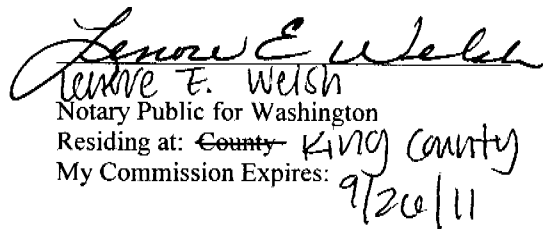 Lenore E Welsh
Lenore E. Welsh
Notary Public for Washington
Residing at: County King County
My Commission Expires: 9/26/11